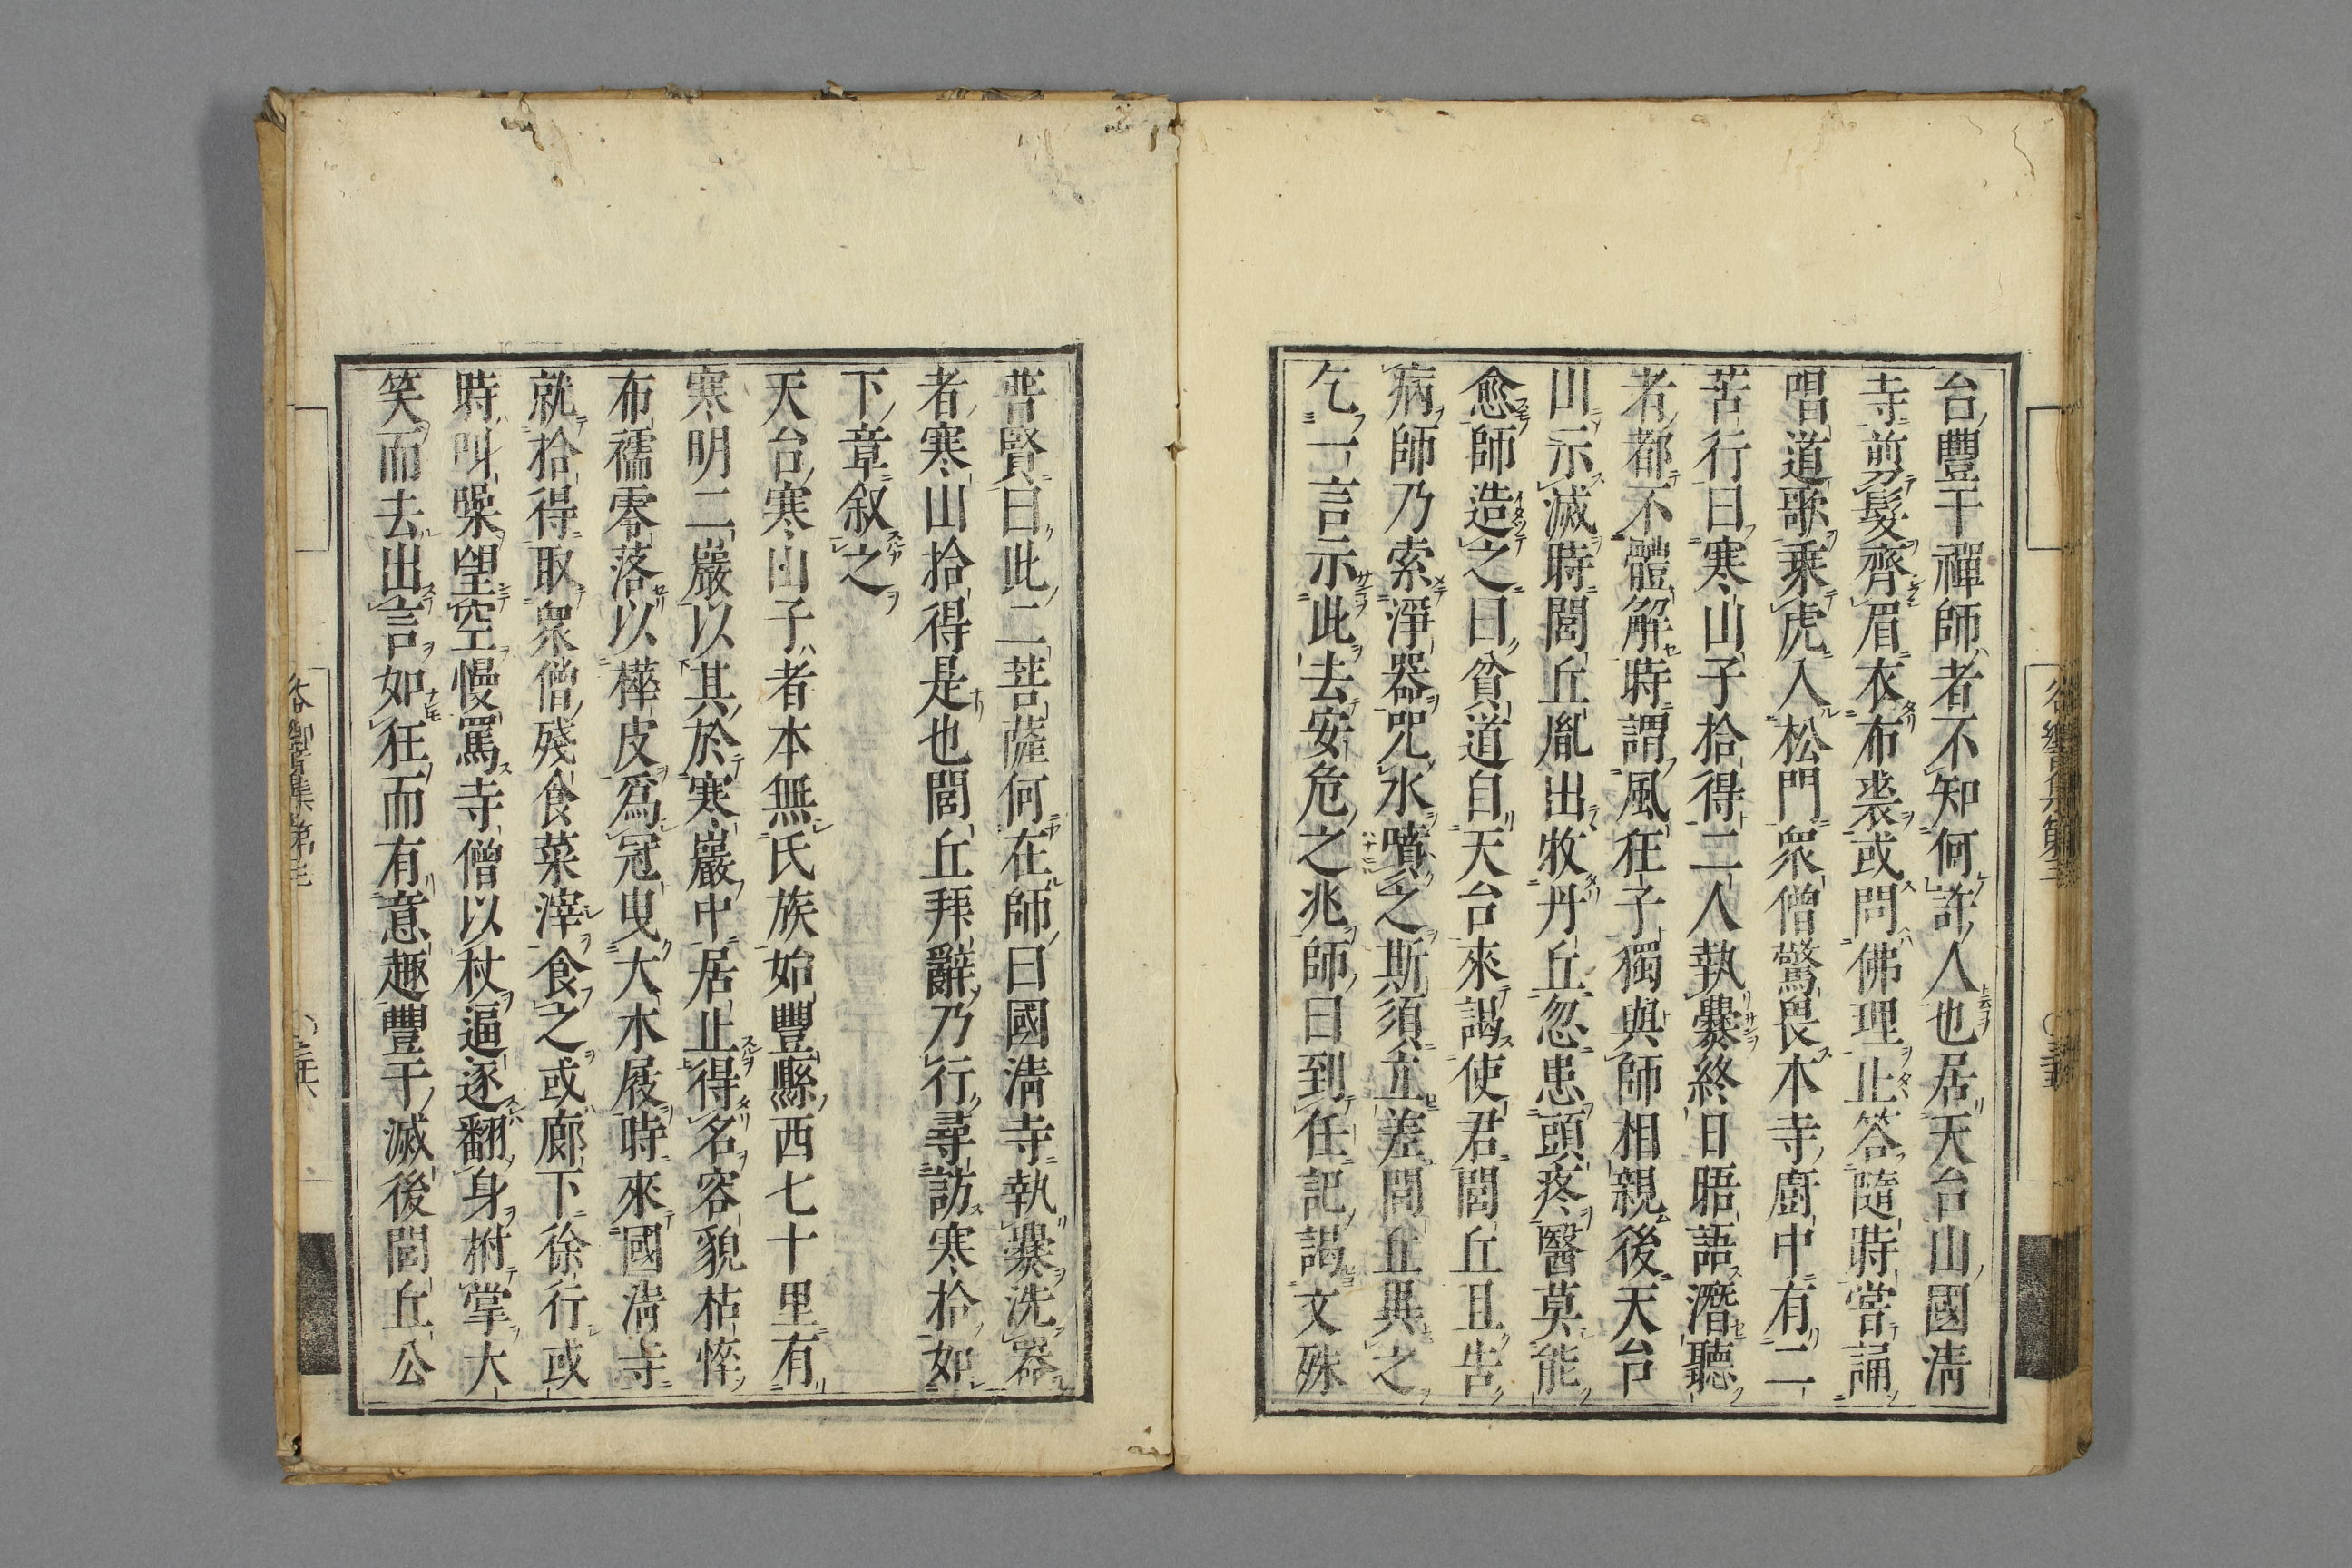 台豐干禪師者不知何許人也居天台山國淸
寺剪髮齊眉衣布裘或問佛理止答隨時嘗誦
唱道歌乗虎入松門衆僧驚畏本寺廚中有二
苦行曰寒山子拾得二人執爨終日晤語潛聽
者都不體解時謂風狂子獨與師相親後天台
山示滅時閭丘胤出牧丹丘忽患頭疼醫莫能
愈師造之曰貧道自天台來謁使君閭丘且告
病師乃索淨器咒水噴之斯須立差閭丘異之
乞一言示此去安危之兆師曰到任記謁文殊
普賢曰此二菩薩何在師曰國淸寺執爨洗器
者寒山拾得是也閭丘拜辭乃行尋訪寒拾如
下章叙之
天台寒山子者本無氏族始豐縣西七十里有
寒明二巖以其於寒巖中居止得名容貌枯悴
布襦零落以樺皮爲冠曳大木屐時來國淸寺
就拾得取衆僧殘食菜滓食之或廊下徐行或
時叫噪望空慢罵寺僧以杖逼逐翻身拊掌大
笑而去出言如狂而有意趣豐干滅後閭丘公